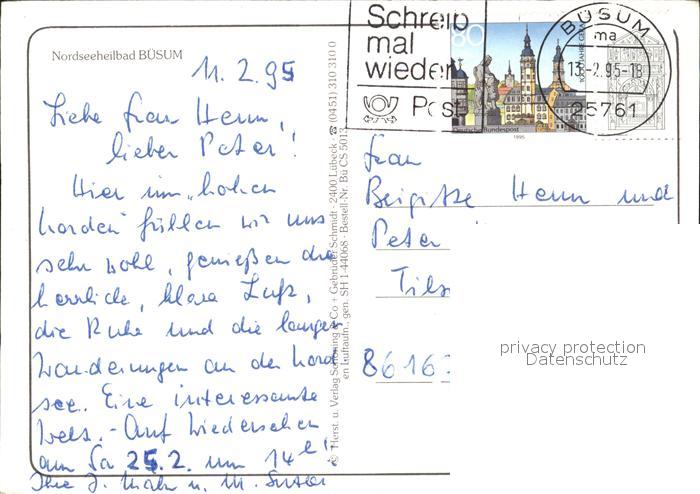 Nordseeheilbad BÜSUM
11.2.95
Liebe Frau Henn,
lieber Peter!
Hier im „hohen
Norden" fühlen wir uns
sehr wohl, genießen die
herrliche, klare Luft,
die Ruhe und die langen
Wanderungen an der Nord
see. Eine interessante
Welt. - Auf Wiedersehen
am Sa 25.2. um 14 !
Ihre J. u. M.
© Herst. u. Verlag Schöning & Co + Gebrüder Schmidt · 2400 Lübeck · ☎ (0451) 310 310 0
en Luftaufn., gen. SH 1-44068 · Bestell-Nr. Bü CS 5013
Schreib
mal
wieder
Post
80
Deutsche Bundespost
1995
BÜSUM
ma
13.-2.95-18
25761
Frau
Brigitte Henn und
Peter
8616
privacy protection
Datenschutz